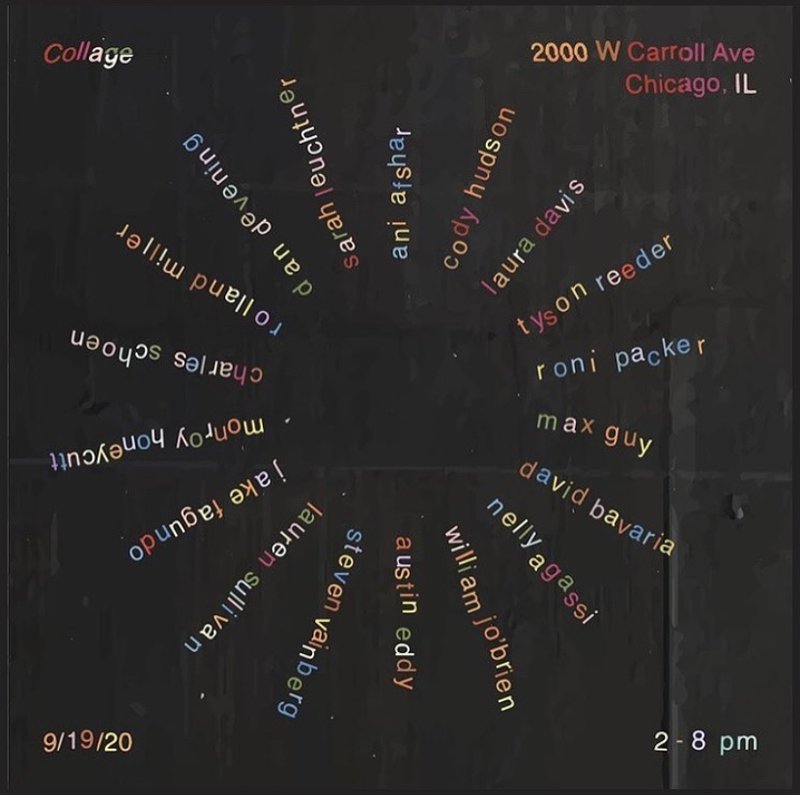 Collage
2000 W Carroll Ave
Chicago, IL
ani afshar
cody hudson
laura davis
tyson reeder
roni packer
max guy
david bavaria
nelly agassi
william jo'brien
austin eddy
steven vainberg
lauren sullivan
jake fagundo
monroy honeycutt
charles schoen
rolland miller
dan devening
sarah leuchtner
9/19/20
2 - 8 pm